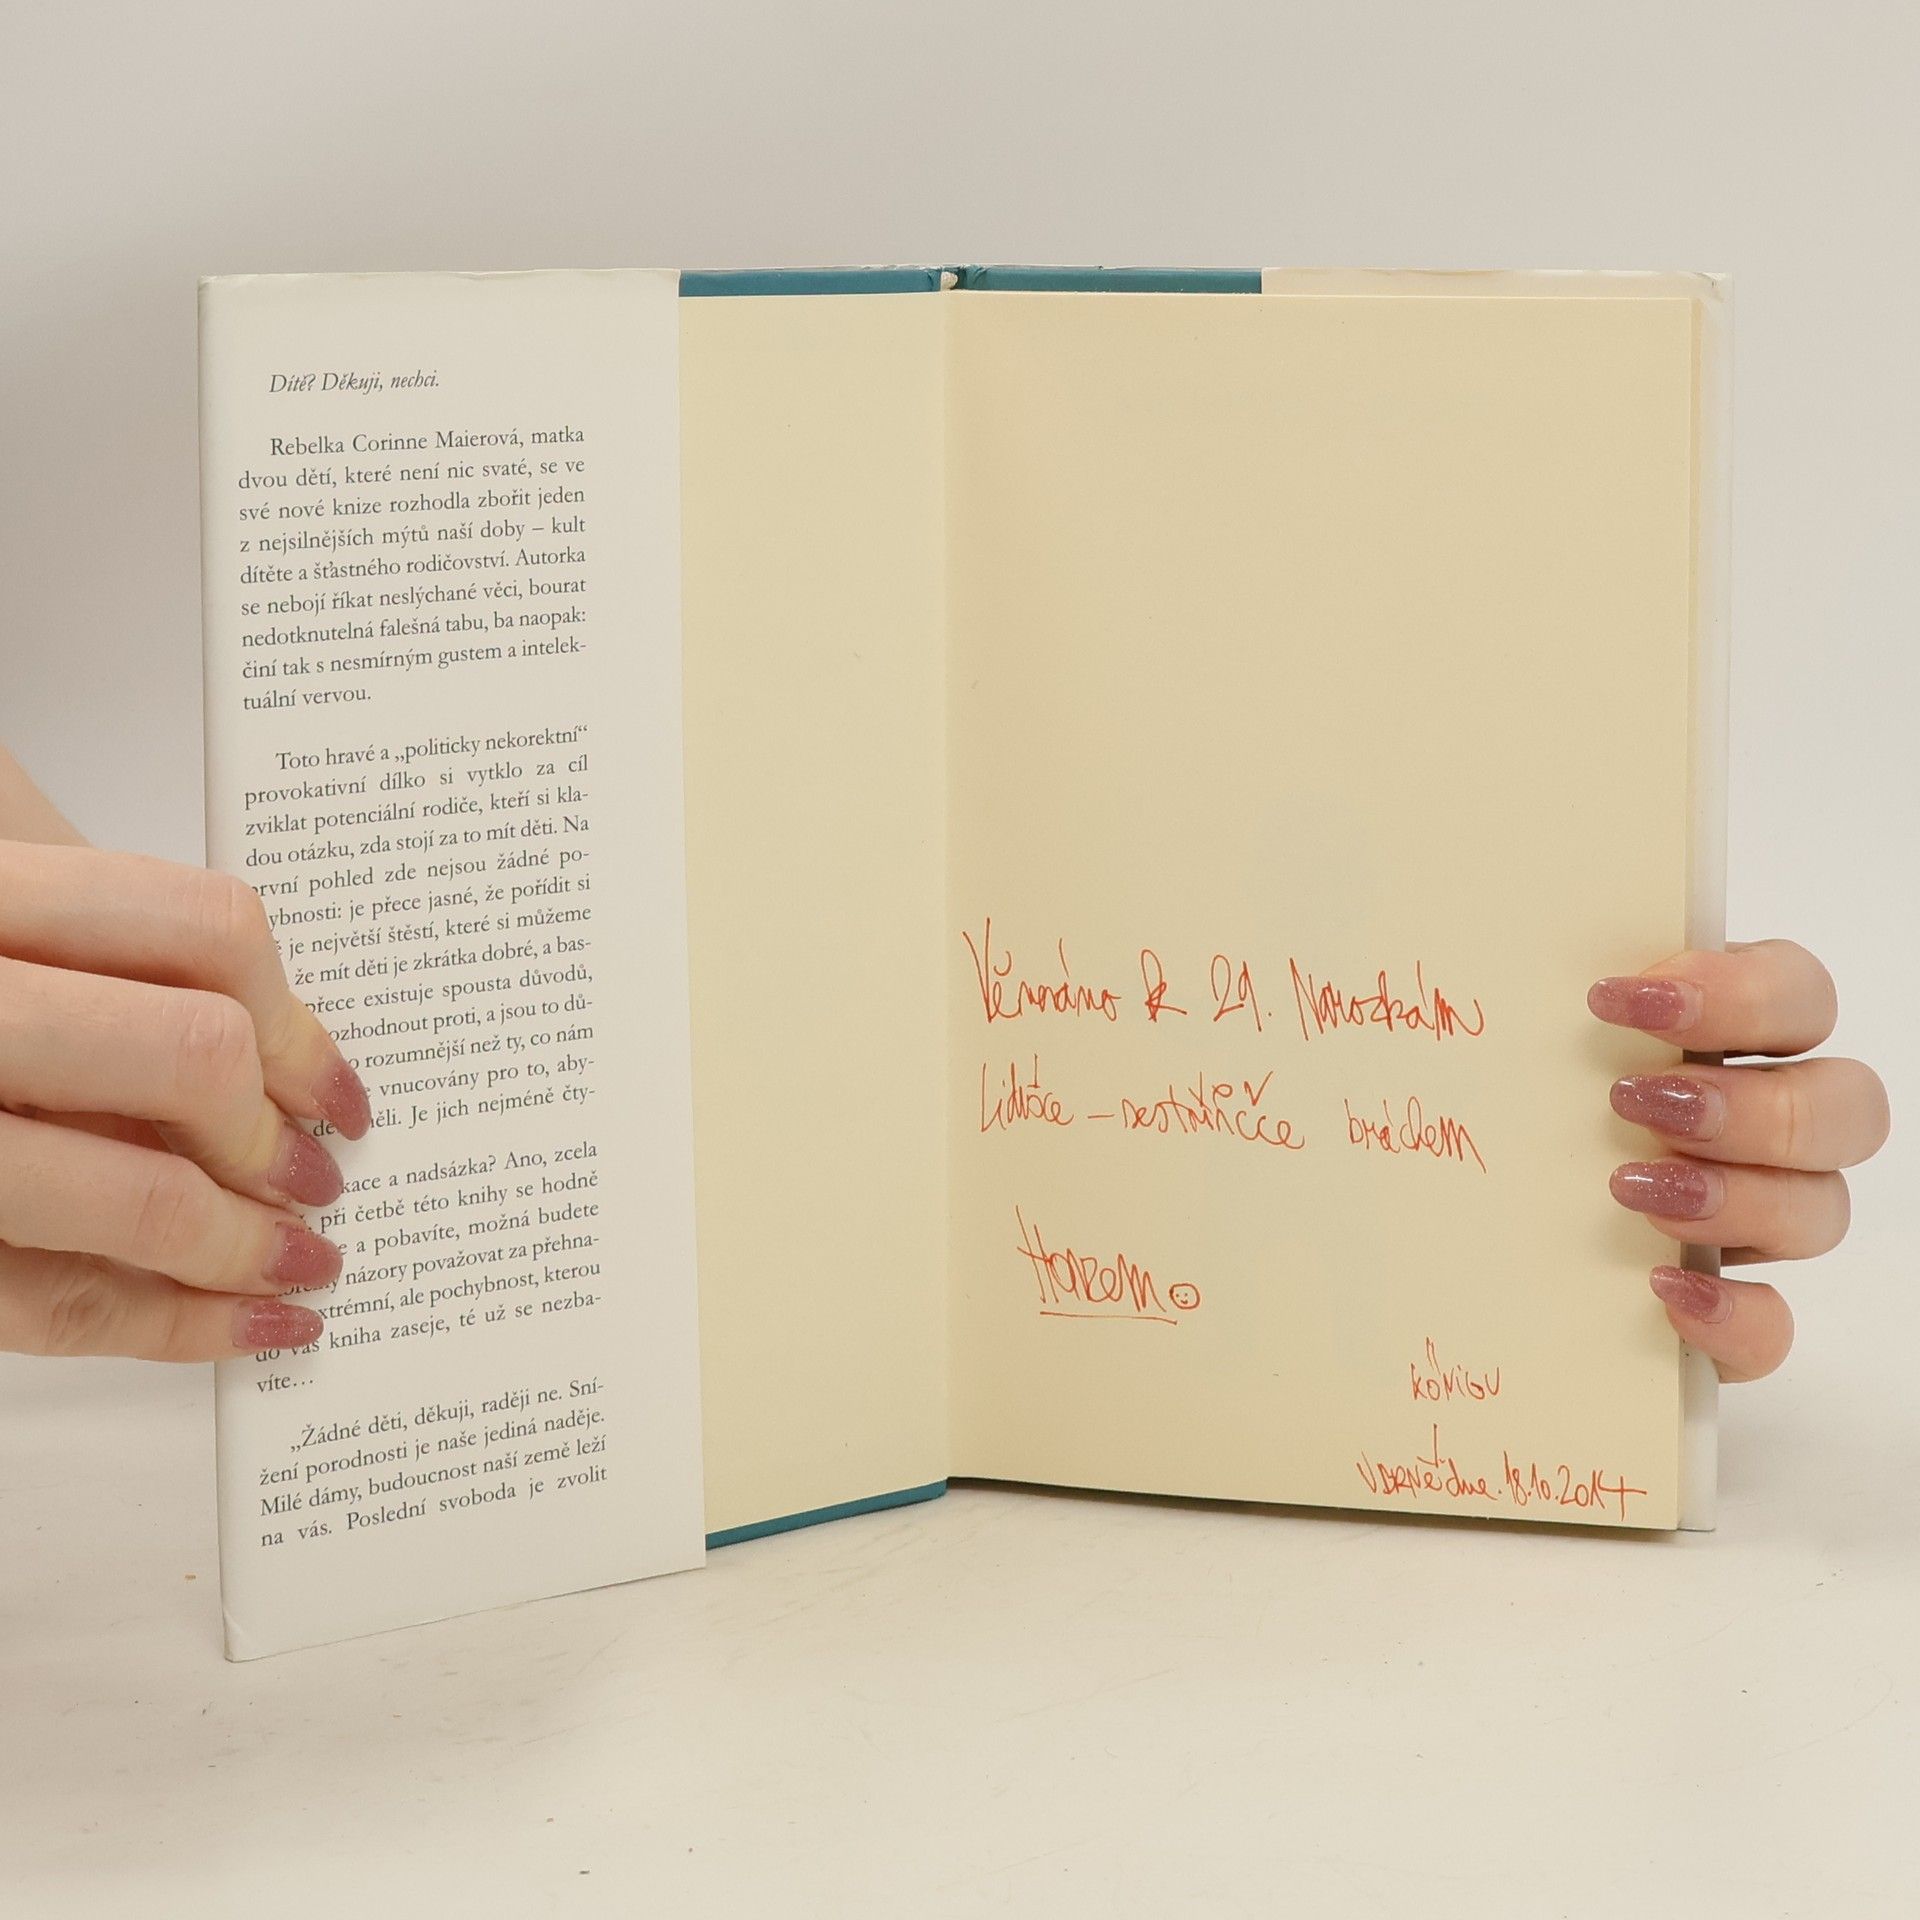 Dítě? Děkuji, nechci.
Rebelka Corinne Maierová, matka
dvou dětí, které není nic svaté, se ve
své nové knize rozhodla zbořit jeden
z nejsilnějších mýtů naší doby – kult
dítěte a šťastného rodičovství. Autorka
se nebojí říkat neslýchané věci, bourat
nedotknutelná falešná tabu, ba naopak:
činí tak s nesmírným gustem a intelek-
tuální vervou.
Toto hravé a „politicky nekorektní“
provokativní dílko si vytklo za cíl
zviklat potenciální rodiče, kteří si kla-
dou otázku, zda stojí za to mít děti. Na
první pohled zde nejsou žádné po-
ybnosti: je přece jasné, že pořídit si
je největší štěstí, které si můžeme
že mít děti je zkrátka dobré, a bas-
přece existuje spousta důvodů,
ozhodnout proti, a jsou to dů-
rozumnější než ty, co nám
vnucovány pro to, aby-
ěli. Je jich nejméně čty-
kace a nadsázka? Ano, zcela
při četbě této knihy se hodně
e a pobavíte, možná budete
názory považovat za přehna-
xtrémní, ale pochybnost, kterou
do vás kniha zaseje, té už se nezba-
víte…
„Žádné děti, děkuji, raději ne. Sní-
žení porodnosti je naše jediná naděje.
Milé dámy, budoucnost naší země leží
na vás. Poslední svoboda je zvolit
Věnováno k 29. Narozkám
Lidušce – sestřičce bráchem
Honzem
V BRNĚ dne. 18.10.2014